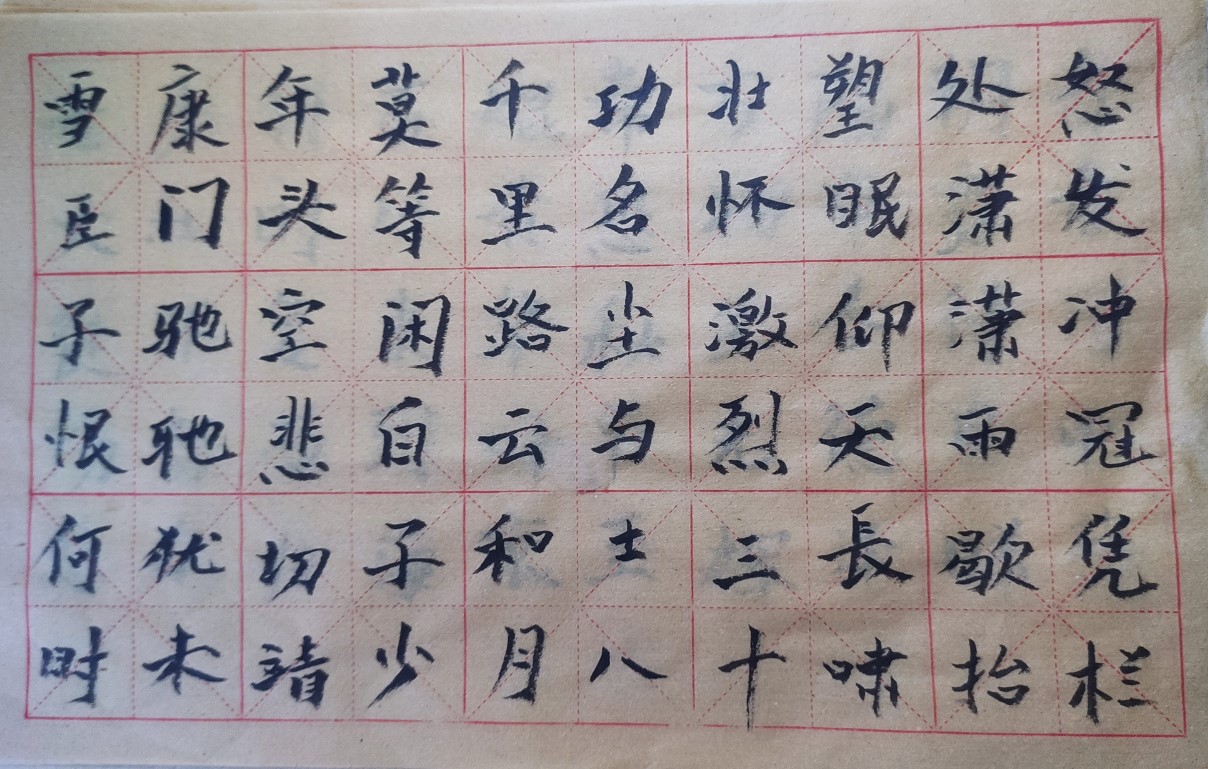 怒发冲冠凭栏
处潇潇雨歇抬
望眠仰天長啸
壮怀激烈三十
功名尘与士八
千里路云和月
莫等闲白子少
年头空悲切靖
康门驰耻犹未
雪臣子恨何时